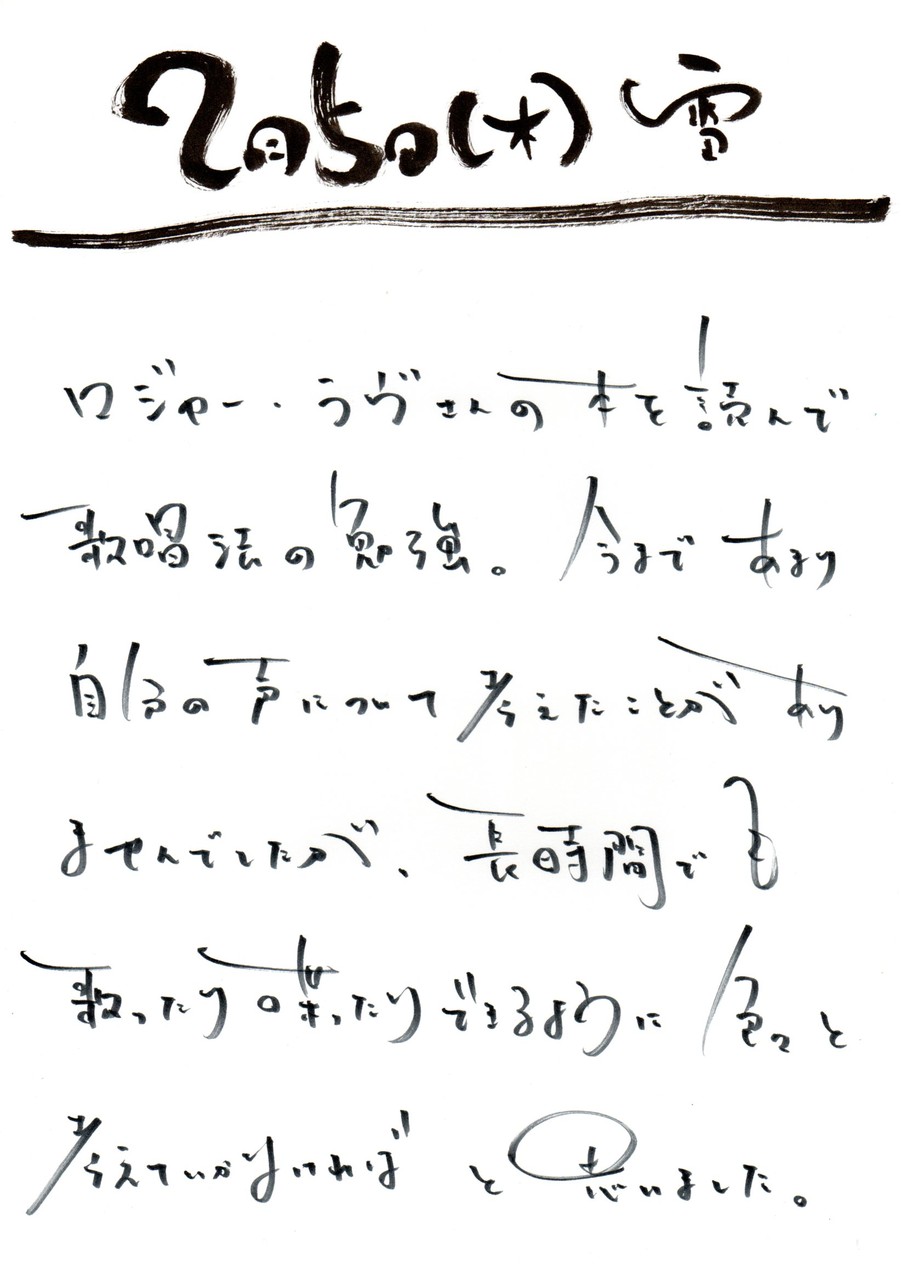 2月5日(木) 雪
ロジャー・ラヴさんの本を読んで
歌唱法の勉強。今まであまり
自分の声について考えたことがあり
ませんでしたが、長時間でも
歌ったり喋ったりできるように色々と
考えていかなければと思いました。